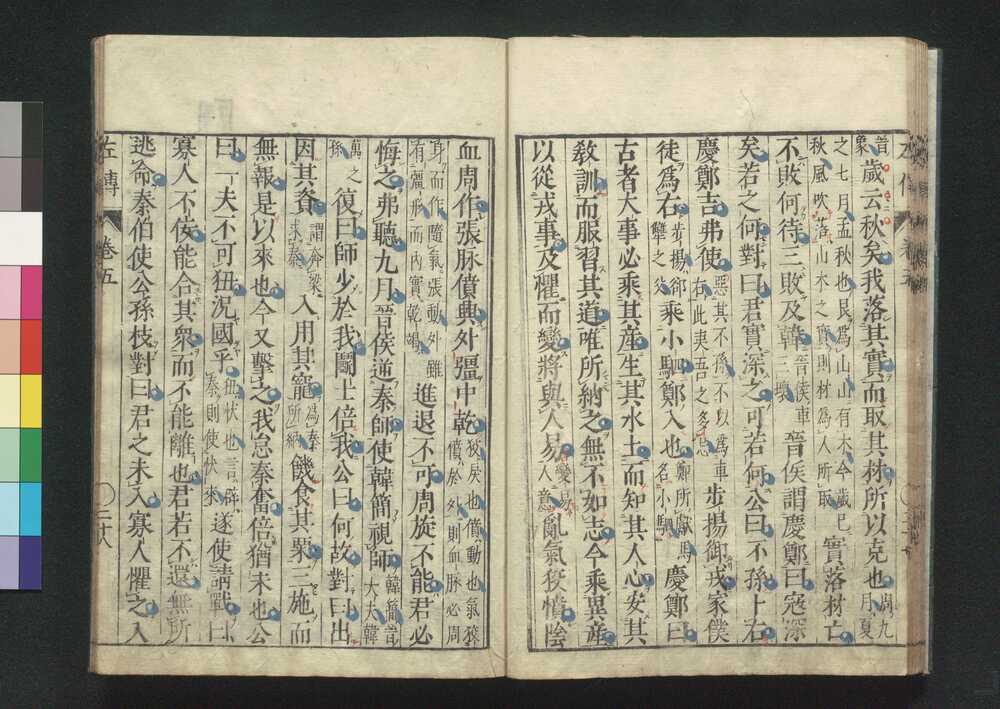 歲云秋矣我落其實而取其材所以克也周九月夏
之七月孟秋也艮為山山有木今歲已秋風吹落山木之實則材為人所取實落材亡
不敗何待三敗及韓晉侯車三壞晉侯謂慶鄭曰寇深
矣若之何對曰君實深之可若何公曰不孫卜右
慶鄭吉弗使惡其不孫不以為車右此夷吾之多忌步揚御戎家僕
徒為右步揚郤犨之父乘小駟鄭入也鄭所獻馬名小駟慶鄭曰
古者大事必乘其產生其水土而知其人心安其
教訓而服習其道唯所納之無不如志今乘異產
以從戎事及懼而變將與人易變易人意亂氣狡憤陰
血周作張脉僨興外彊中乾狡戾也僨動也氣狡憤於外則血脉必周
身而作隨氣張動外雖有彊形而內實乾竭進退不可周旋不能君必
悔之弗聽九月晉侯逆秦師使韓簡視師韓簡晉大夫韓
萬之孫復曰師少於我鬭士倍我公曰何故對曰出
因其資謂奔梁求秦入用其寵為秦所納饑食其粟三施而
無報是以來也今又擊之我怠秦奮倍猶未也公
曰一夫不可狃況國乎狃忕也言辟秦則使忕來遂使請戰曰
寡人不佞能合其衆而不能離也君若不還無所
逃命秦伯使公孫枝對曰君之未入寡人懼之入
左傳 卷五 二十八